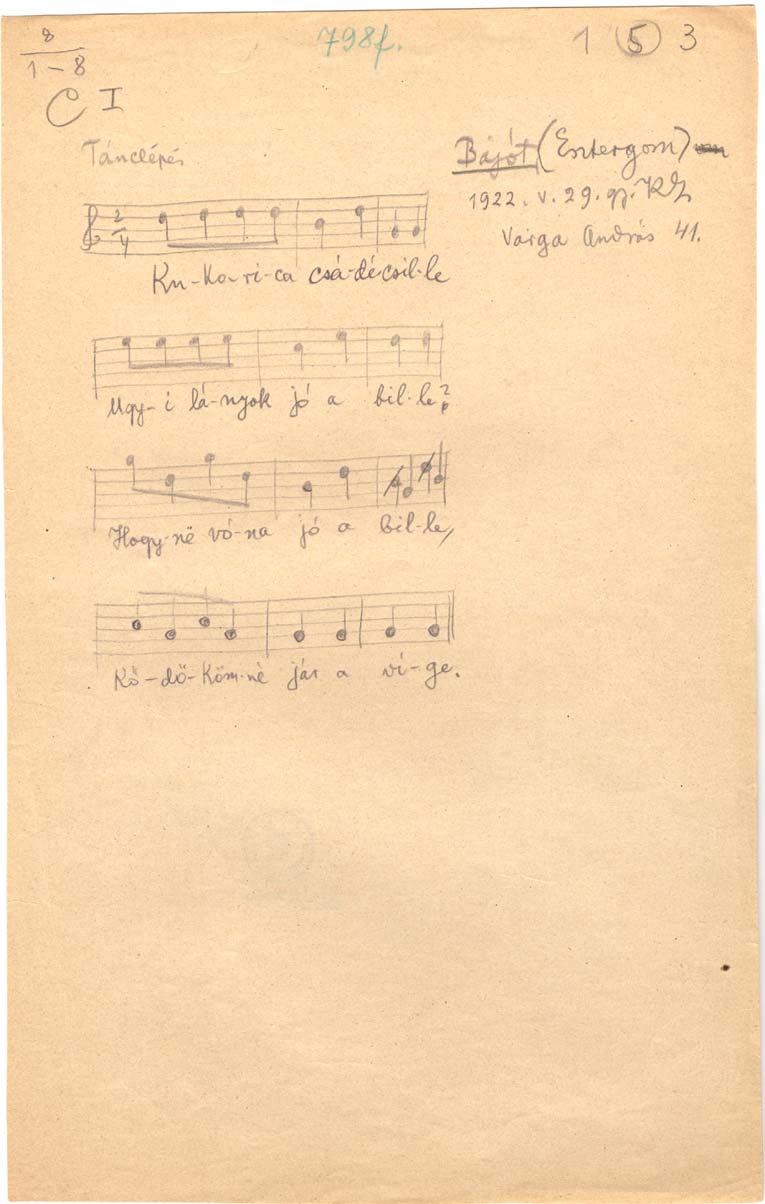 8
1-8
798f.
1 5 3
C I
Tánclépés
Bajót (Esztergom)
1922. V. 29. gj. KZ
Varga András 41.
2
4
Ku-ko-ri-ca csá-dé csil-le
Ugy-i lá-nyok jó a bil-le?
Hogy-në vó-na jó a bil-le,
Kö-dö-köm-në jár a vi-ge.